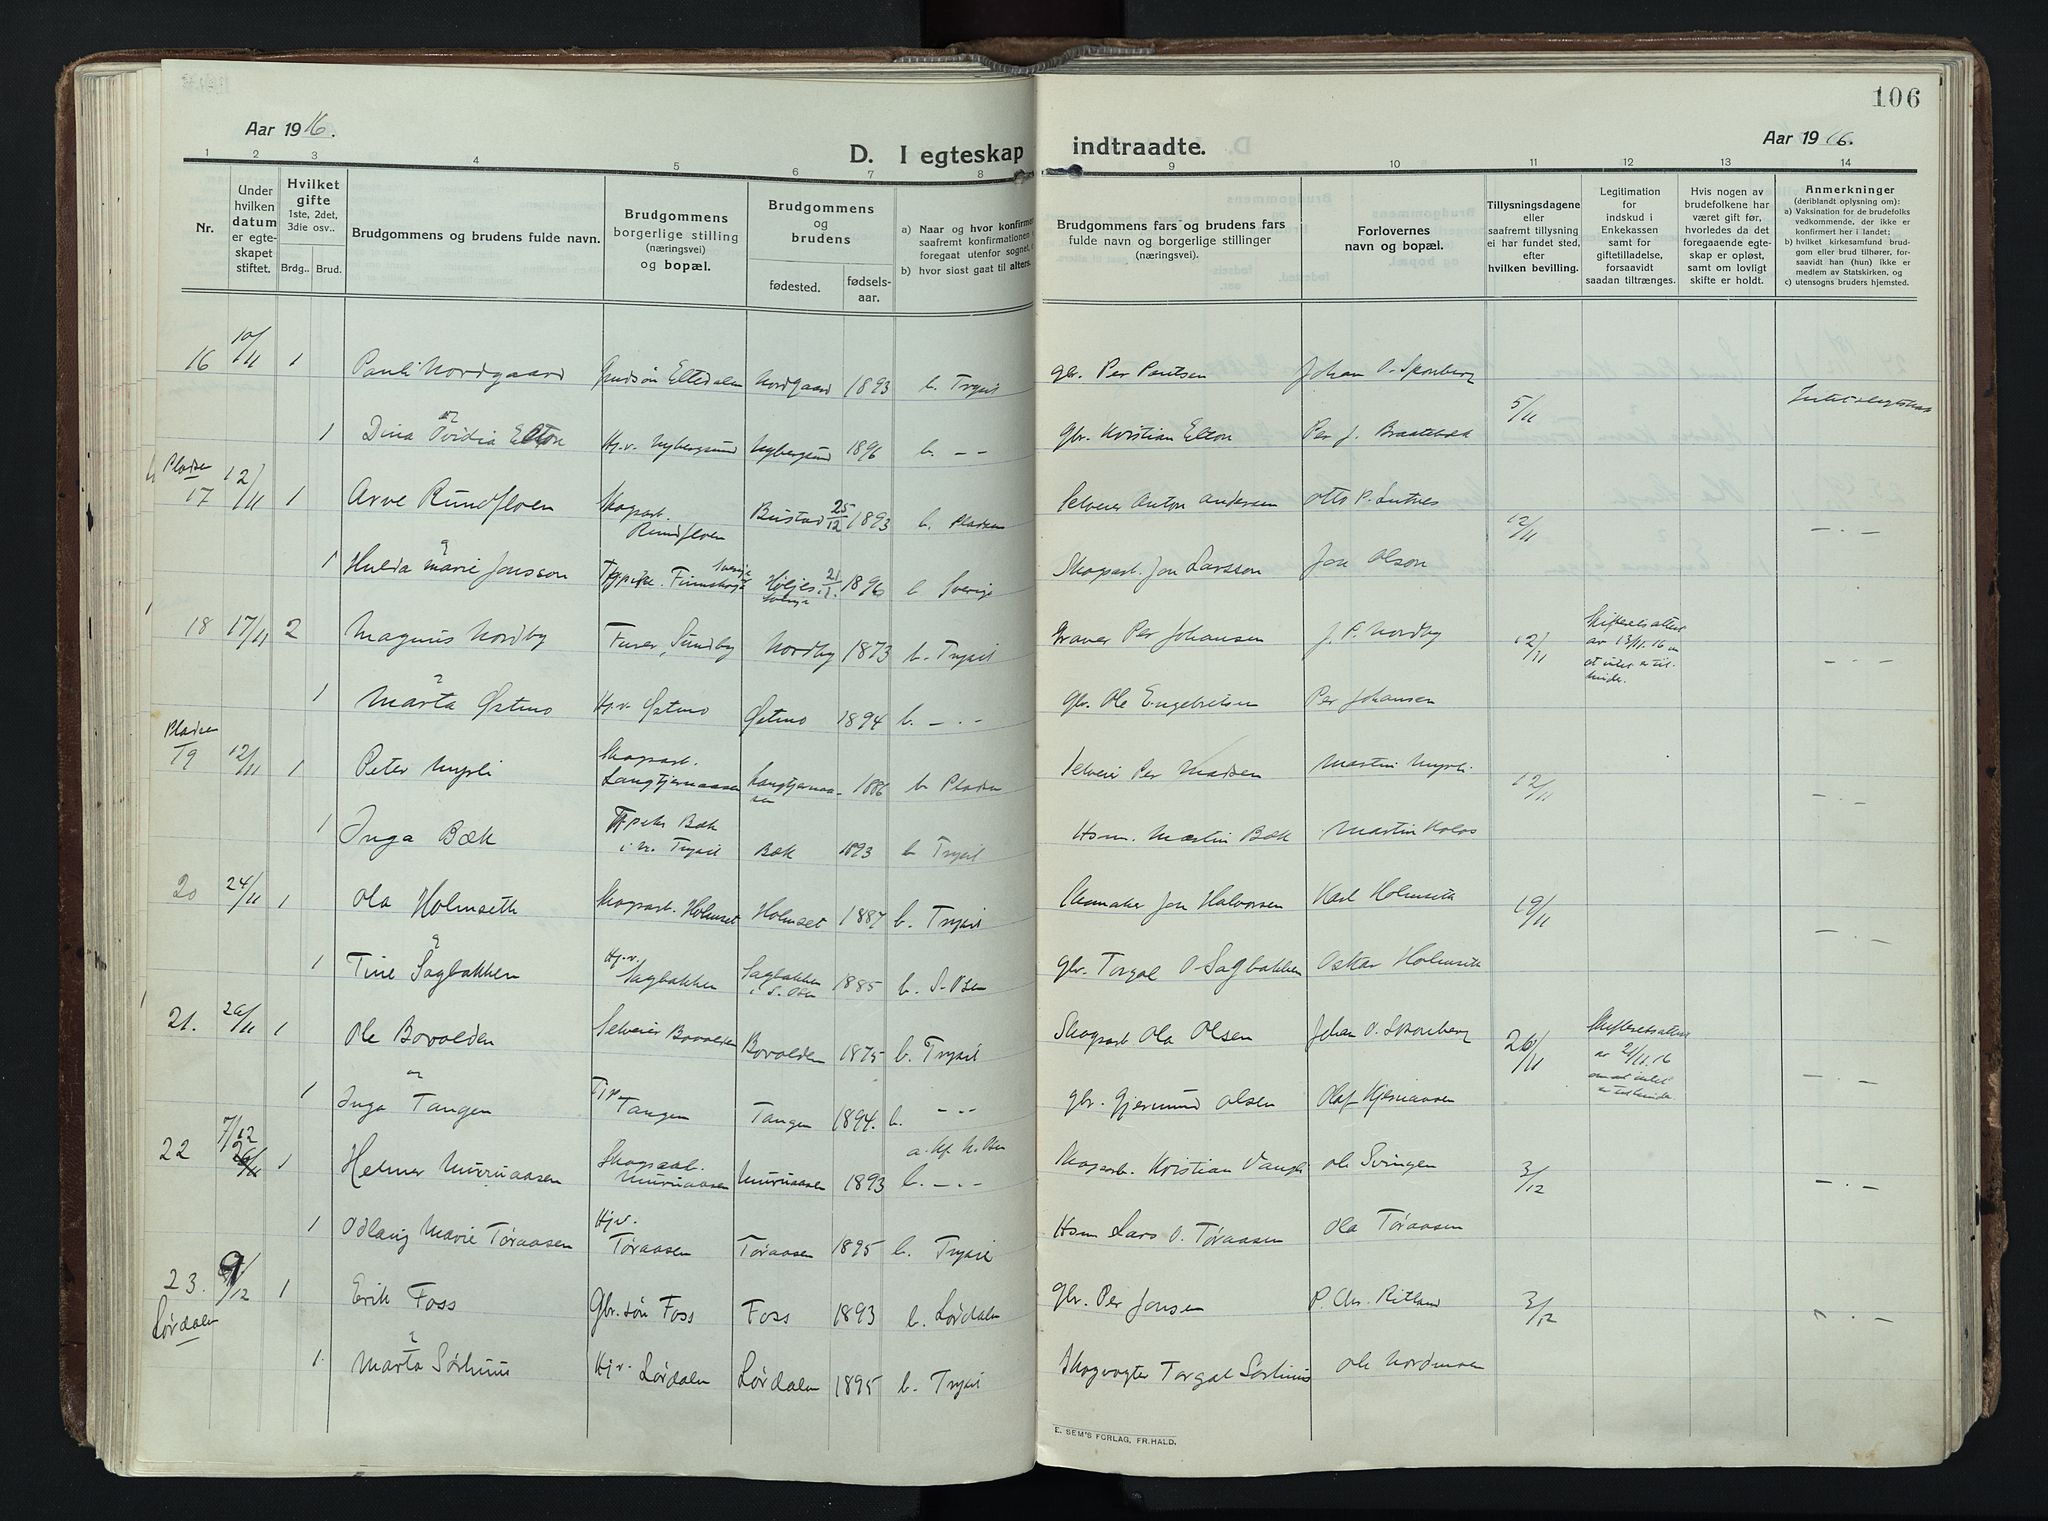 106
Aar 1916.
D. I egteskap indtraadte.
Aar 1916.
1 2 3 4 5 6 7 8 9 10 11 12 13 14
Nr.
Under hvilken datum er egteskapet stiftet.
Hvilket gifte 1ste, 2det, 3die osv..
Brdg.. Brud.
Brudgommens og brudens fulde navn.
Brudgommens borgerlige stilling (næringsvei) og bopæl.
Brudgommens og brudens
fødested. fødselsaar.
a) Naar og hvor konfirmer
saafremt konfirmationen
foregaat utenfor sognet,
b) hvor sidst gaat til alters.
Brudgommens fars og brudens fars fulde navn og borgerlige stillinger (næringsvei).
Forlovernes navn og bopæl.
Tillysningsdagene eller saafremt tillysning ei har fundet sted, efter hvilken bevilling.
Legitimation for indskud i Enkekassen samt for giftetilladelse, forsaavidt saadan tiltrænges.
Hvis nogen av brudefolkene har været gift før, hvorledes da det foregaaende egteskap er opløst, samt om lovligt skifte er holdt.
Anmerkninger (deriblandt oplysning om):
a) Vaksination for de brudefolks vedkommende, der ikke er konfirmert her i landet;
b) hvilket kirkesamfund brudgom eller brud tilhører, forsaavidt han (hun) ikke er medlem av Statskirken, og
c) utensogns bruders hjemsted.
16 10/11 1 Pauli Nordgaard Nordgaard 1893 b. Trysil gbr. Per Paulsen Johan O. Skonberg 5/11
1 Dina Ovidia Elton Hj.v. Nybergsund Nybergsund 1896 b. – – gbr. Kristian Elton Per J.
Pladsen
17 12/11 1 Arve Rundfloen Skogsarb. Rundfloen Bustad 25/12 1893 b. Pladsen Selveier Anton Andersen Otto P. Lutnes 12/11 – . –
1 og Hulda Marie Jonsson Sverige Høljes Sverige 21/1 1896 b Sverige Skogsarb. Jon Larsson Jon Olson
18 17/11 2 Magnus Nordby Furer, Sundby Nordby 1873 b. Trysil Graver Per Johansen J. P. Nordby 12/11 Skifteretsattest av 13/11. 16 – . –
1 og Marta Østmo Hj.v. Østmo Østmo 1894 b. – . – gbr. Ole Engebretsen Per Johansen
Pladsen
19 12/11 1 Peter Myrli Skogsarb. Langtjernaasen Langtjernaasen 1886 b Pladsen Selveier Per Madsen Martin Myrli 12/11 – . –
1 Inga Bæk Bæk i N. Trysil Bæk 1893 b Trysil Hsm. Martin Bæk Martin Kolos
20 24/11 1 Ola Holmseth Skogsarb. Holmset Holmset 1887 b. Trysil Skomaker Jon Halvorsen Karl Holmseth 19/11 – . –
1 og Tine Sagbakken Hj.v. Sagbakken Sagbakken i S. Osen 1885 b. S. Osen gbr. Torgal O. Sagbakken Oskar Holmseth
21. 26/11 1 Ole Bovolden Selveier Bovolden Bovolden 1875 b. Trysil Skogsarb. Ola Olsen Johan O. Skonberg 26/11 Skifteretsattest av 21/11. 16 – . –
1 og Inga Tangen Tangen Tangen 1894. b. – – gbr. Gjermund Olsen Olaf Kjernaasen
22 7/12 26/11 1 Helmer Muruaasen Skogsarb. Muruaasen Muruaasen 1893 b. – . – Skogsarb. Kristian Vangli Ole Svingen 3/12 – . –
1 Odlaug Marie Tøraasen Hj.v. Tøraasen Tøraasen 1895 b. Trysil Hsm Lars O. Tøraasen Ola Tøraasen
23. 9/12 1 Erik Foss Gbr. søn Foss Foss 1893 b. Lørdalen gbr. Per Jonsen P. Chr. Ritland 3/12
Lørdalen
1. og Marta Sørhuus Hj.v. Lørdalen Lørdalen 1895 b. Trysil Skogvogter Torgal Sørhuus Ole Nordmoen
E. SEM'S FORLAG, FR.HALD.